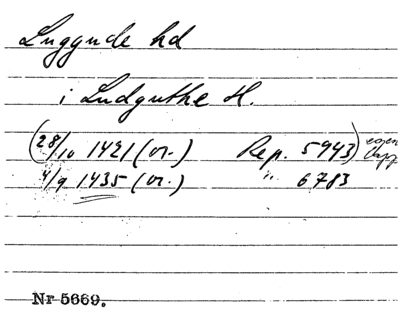 Luggude hd
i Ludguthe H.
(28/10 1421 (or.) Rep. 5943) egen
4/9 1435 (or.) " 6783
Nr 5669.